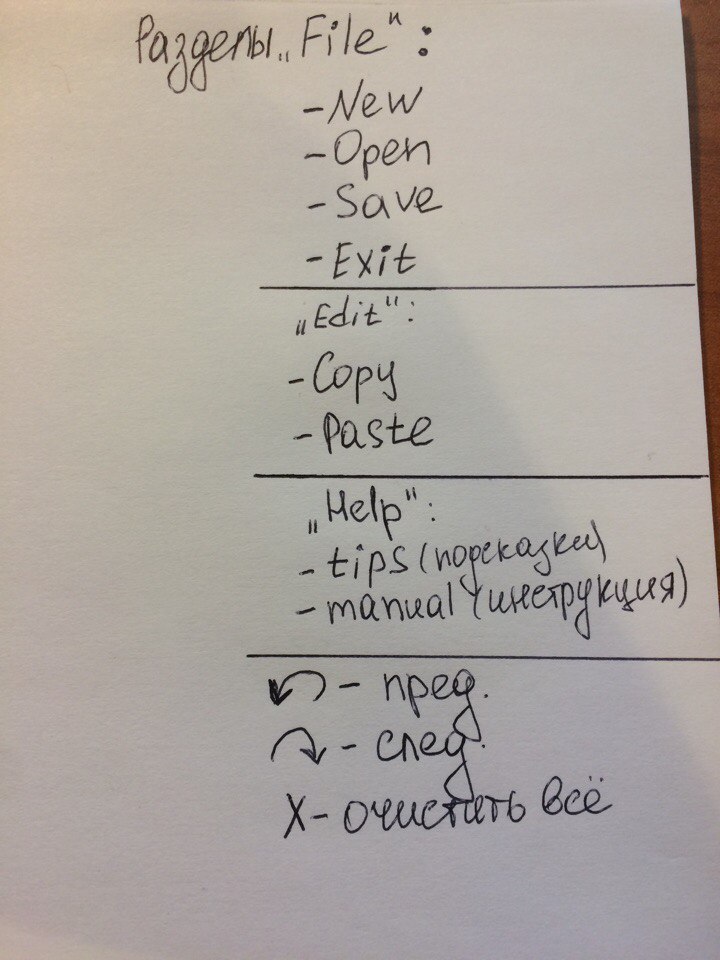 Разделы „File“:
- New
- Open
- Save
- Exit
„Edit“:
- Copy
- Paste
„Help“:
- tips (подсказки)
- manual (инструкция)
↶ - пред.
↷ - след.
X - очистить всё